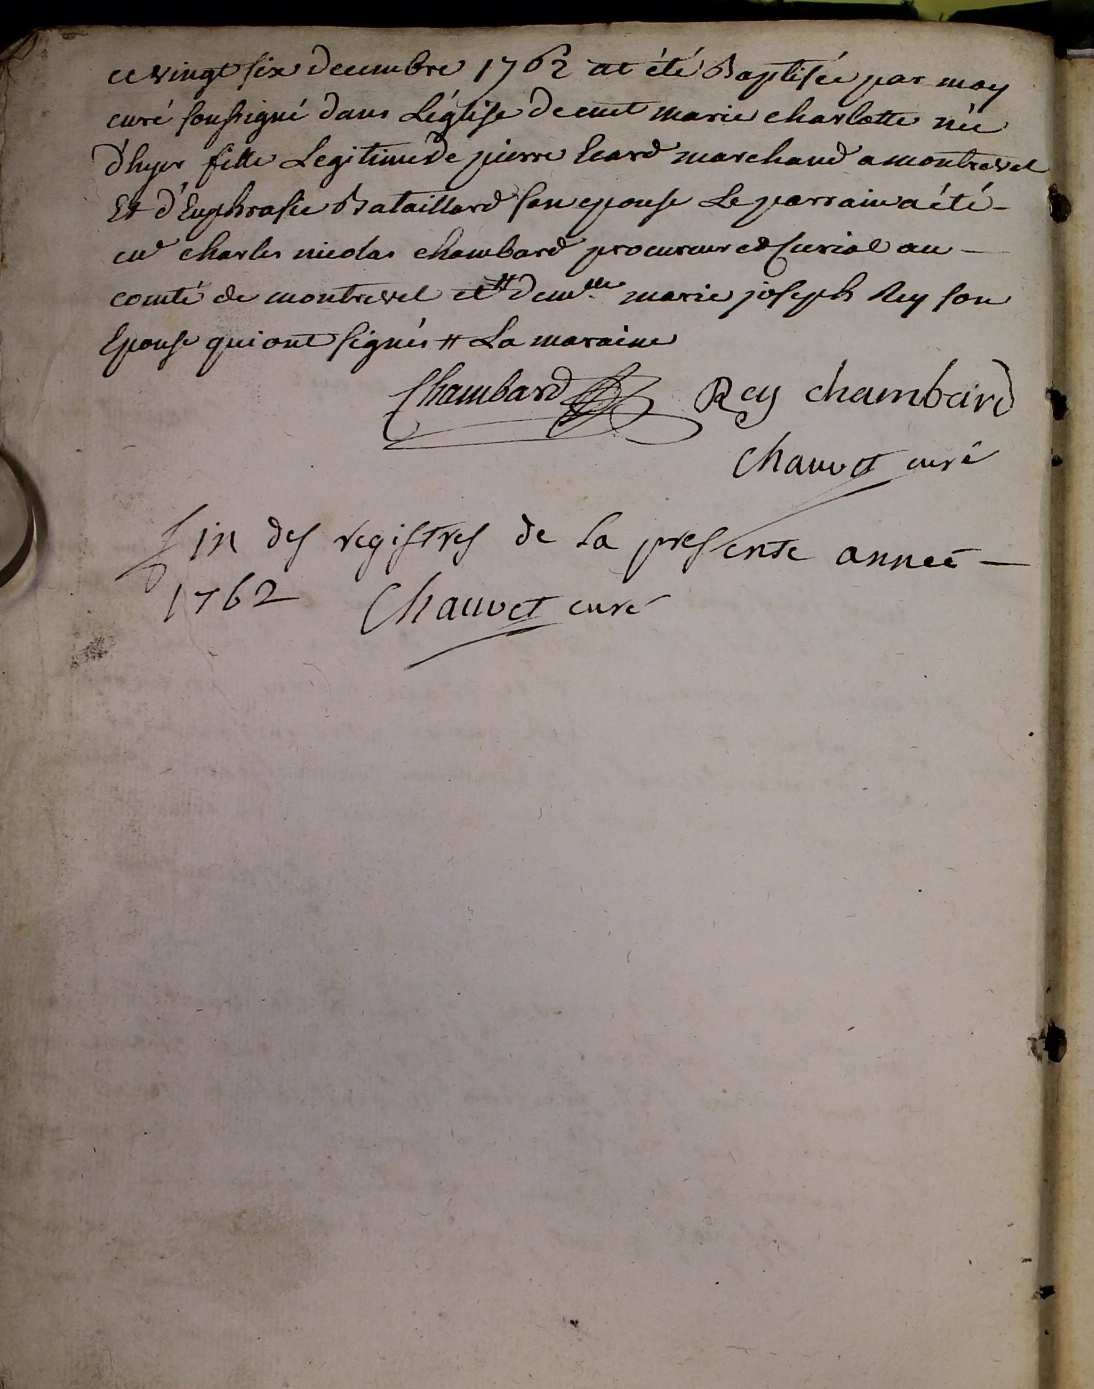 ce vingt six decembre 1762 at été Baptisée par moy
curé soussigné dans L'église de cuet marie charlotte née
d'hyer fille Legitime de pierre Ecard marchand a montrevel
Et d'Euphrasie Bataillard son epouse Le parrain a été -
charles nicolas chambard procureur curial au -
comté de montrevel et # demlle marie joseph Rey son
Epouse qui ont signés # La maraine
Chambard Rey chambard
Chauvet curé
fin des registres de la presente anneé -
1762 Chauvet curé